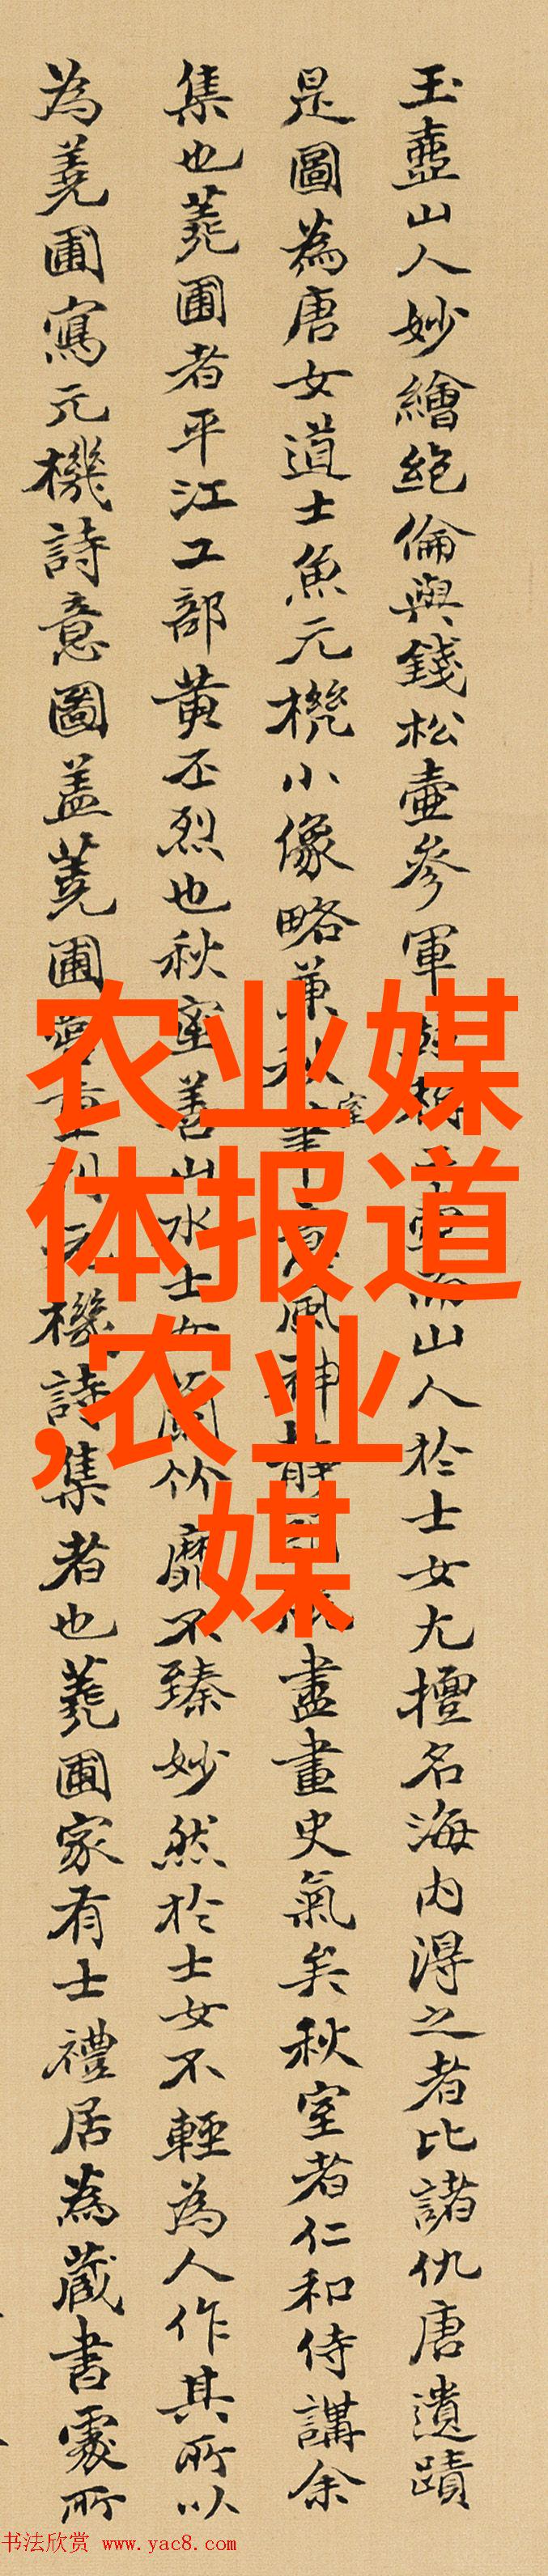 玉壺山人妙繪絶倫與錢松壺參軍
山人於士女尤擅名海内得之者比諸仇唐遺蹟
是圖為唐女道士魚元機小像略兼秋室
風神静
盡畫史氣矣秋室者仁和侍講余
集也蕘圃者平江工部黄丕烈也秋室善山水士女蘭竹靡不臻妙然於士女不輕為人作其所以
為蕘圃寫元機詩意圖蓋蕘圃
機詩集者也蕘圃家有士禮居為藏書處所
农业媒
体报道
,农业
媒
书法欣赏 www.yac8.com